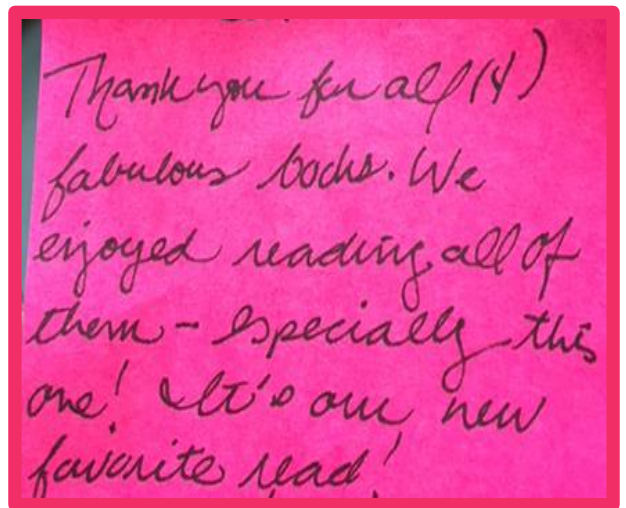 Thank you for all (4)
fabulous books. We
enjoyed reading all of
them - especially this
one! It's our new
favorite read!